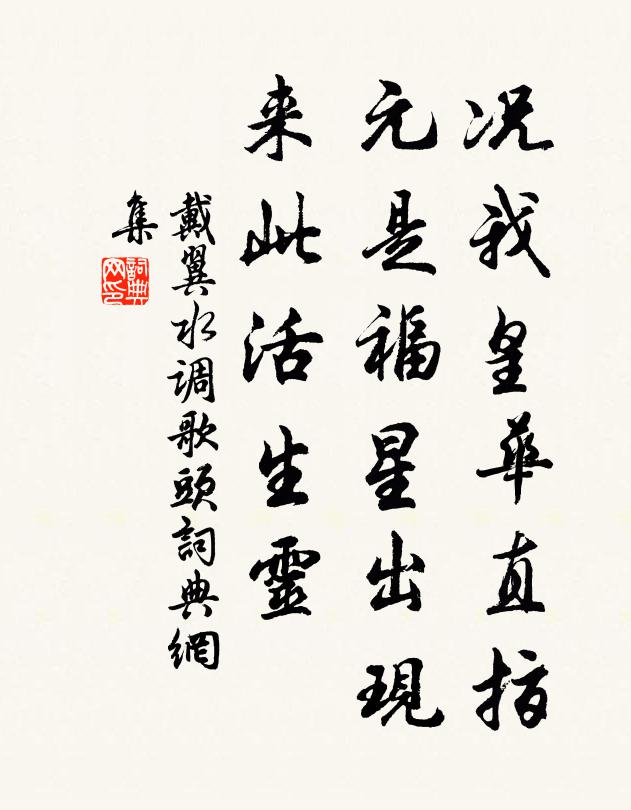 况我皇華直指
元是福星出現
来此活生靈
戴翼水调歌頭詞典網
集
詞典
网印